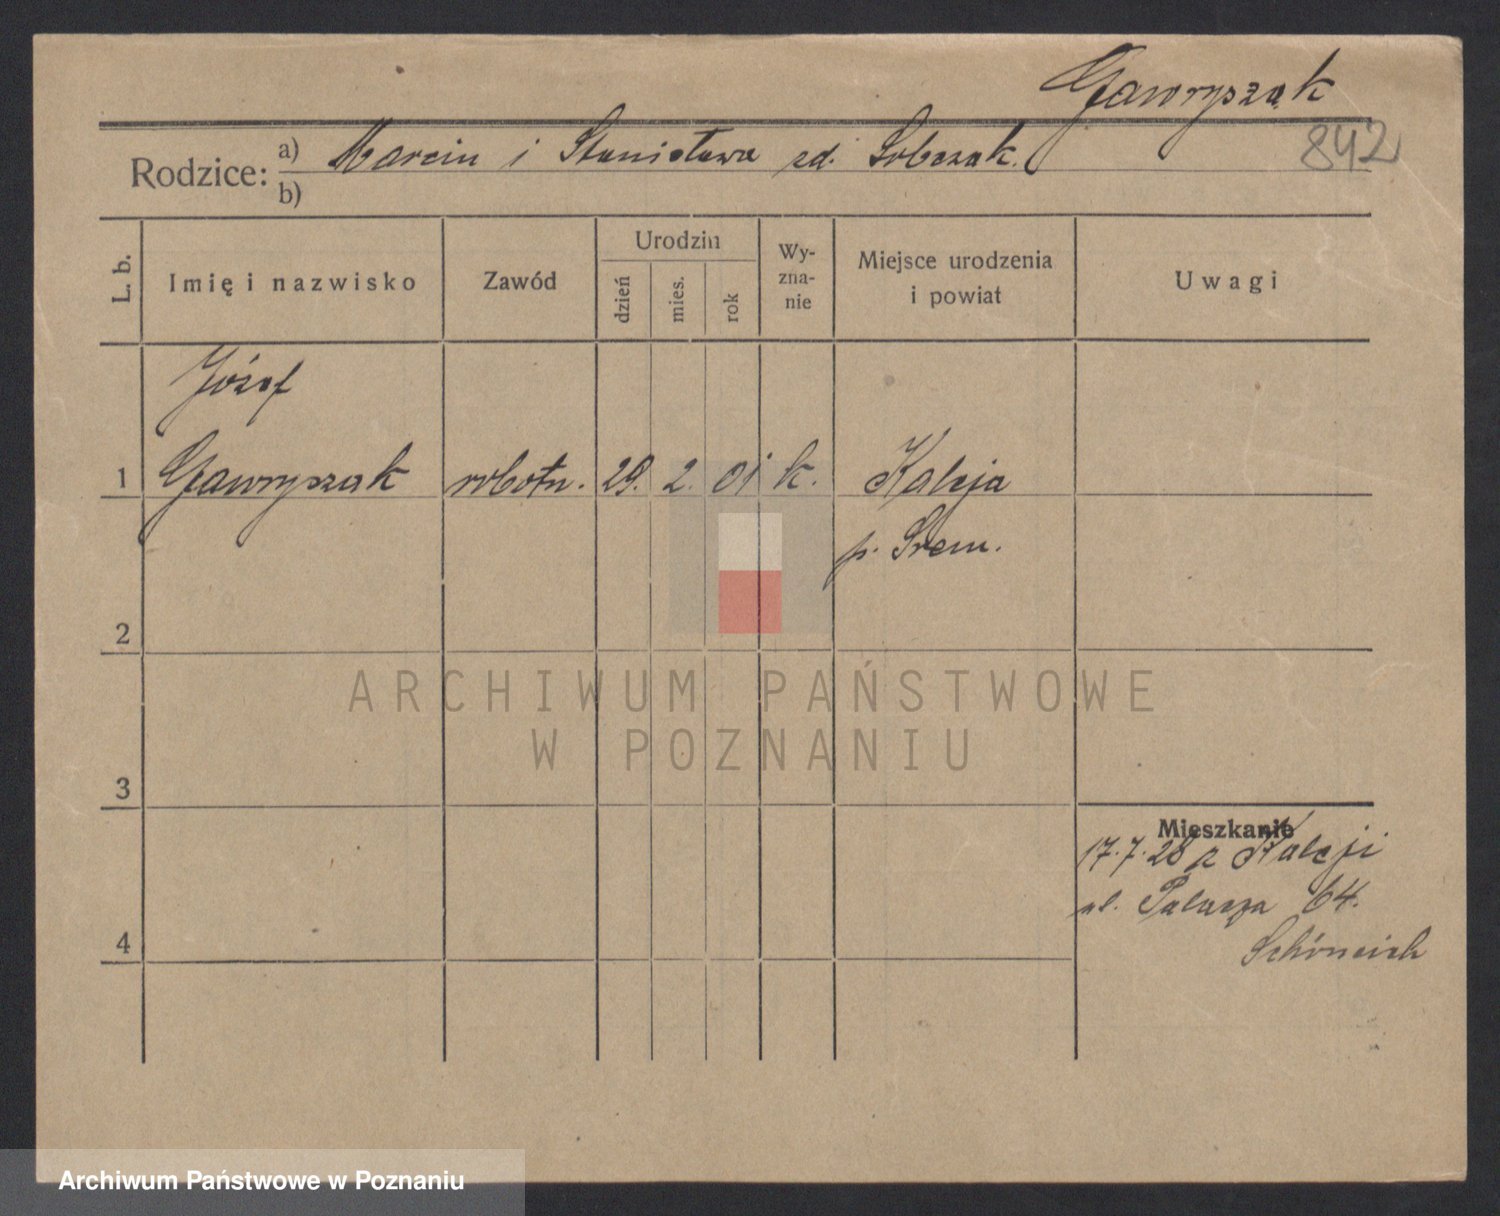 Gawryszak
842
Rodzice: a) Marcin i Stanisława zd. Sobczak.
b)
L. b.
Imię i nazwisko
Zawód
Urodzin
dzień
mies.
rok
Wy-
zna-
nie
Miejsce urodzenia
i powiat
Uwagi
Józef
1 Gawryszak robotn. 29. 2. 01 k. Kaleja
p. Śrem.
2
3
4
Mieszkanie
17.7.28 z Kaleji
ul. 64.
ARCHIWUM PAŃSTWOWE
W POZNANIU
Archiwum Państwowe w Poznaniu